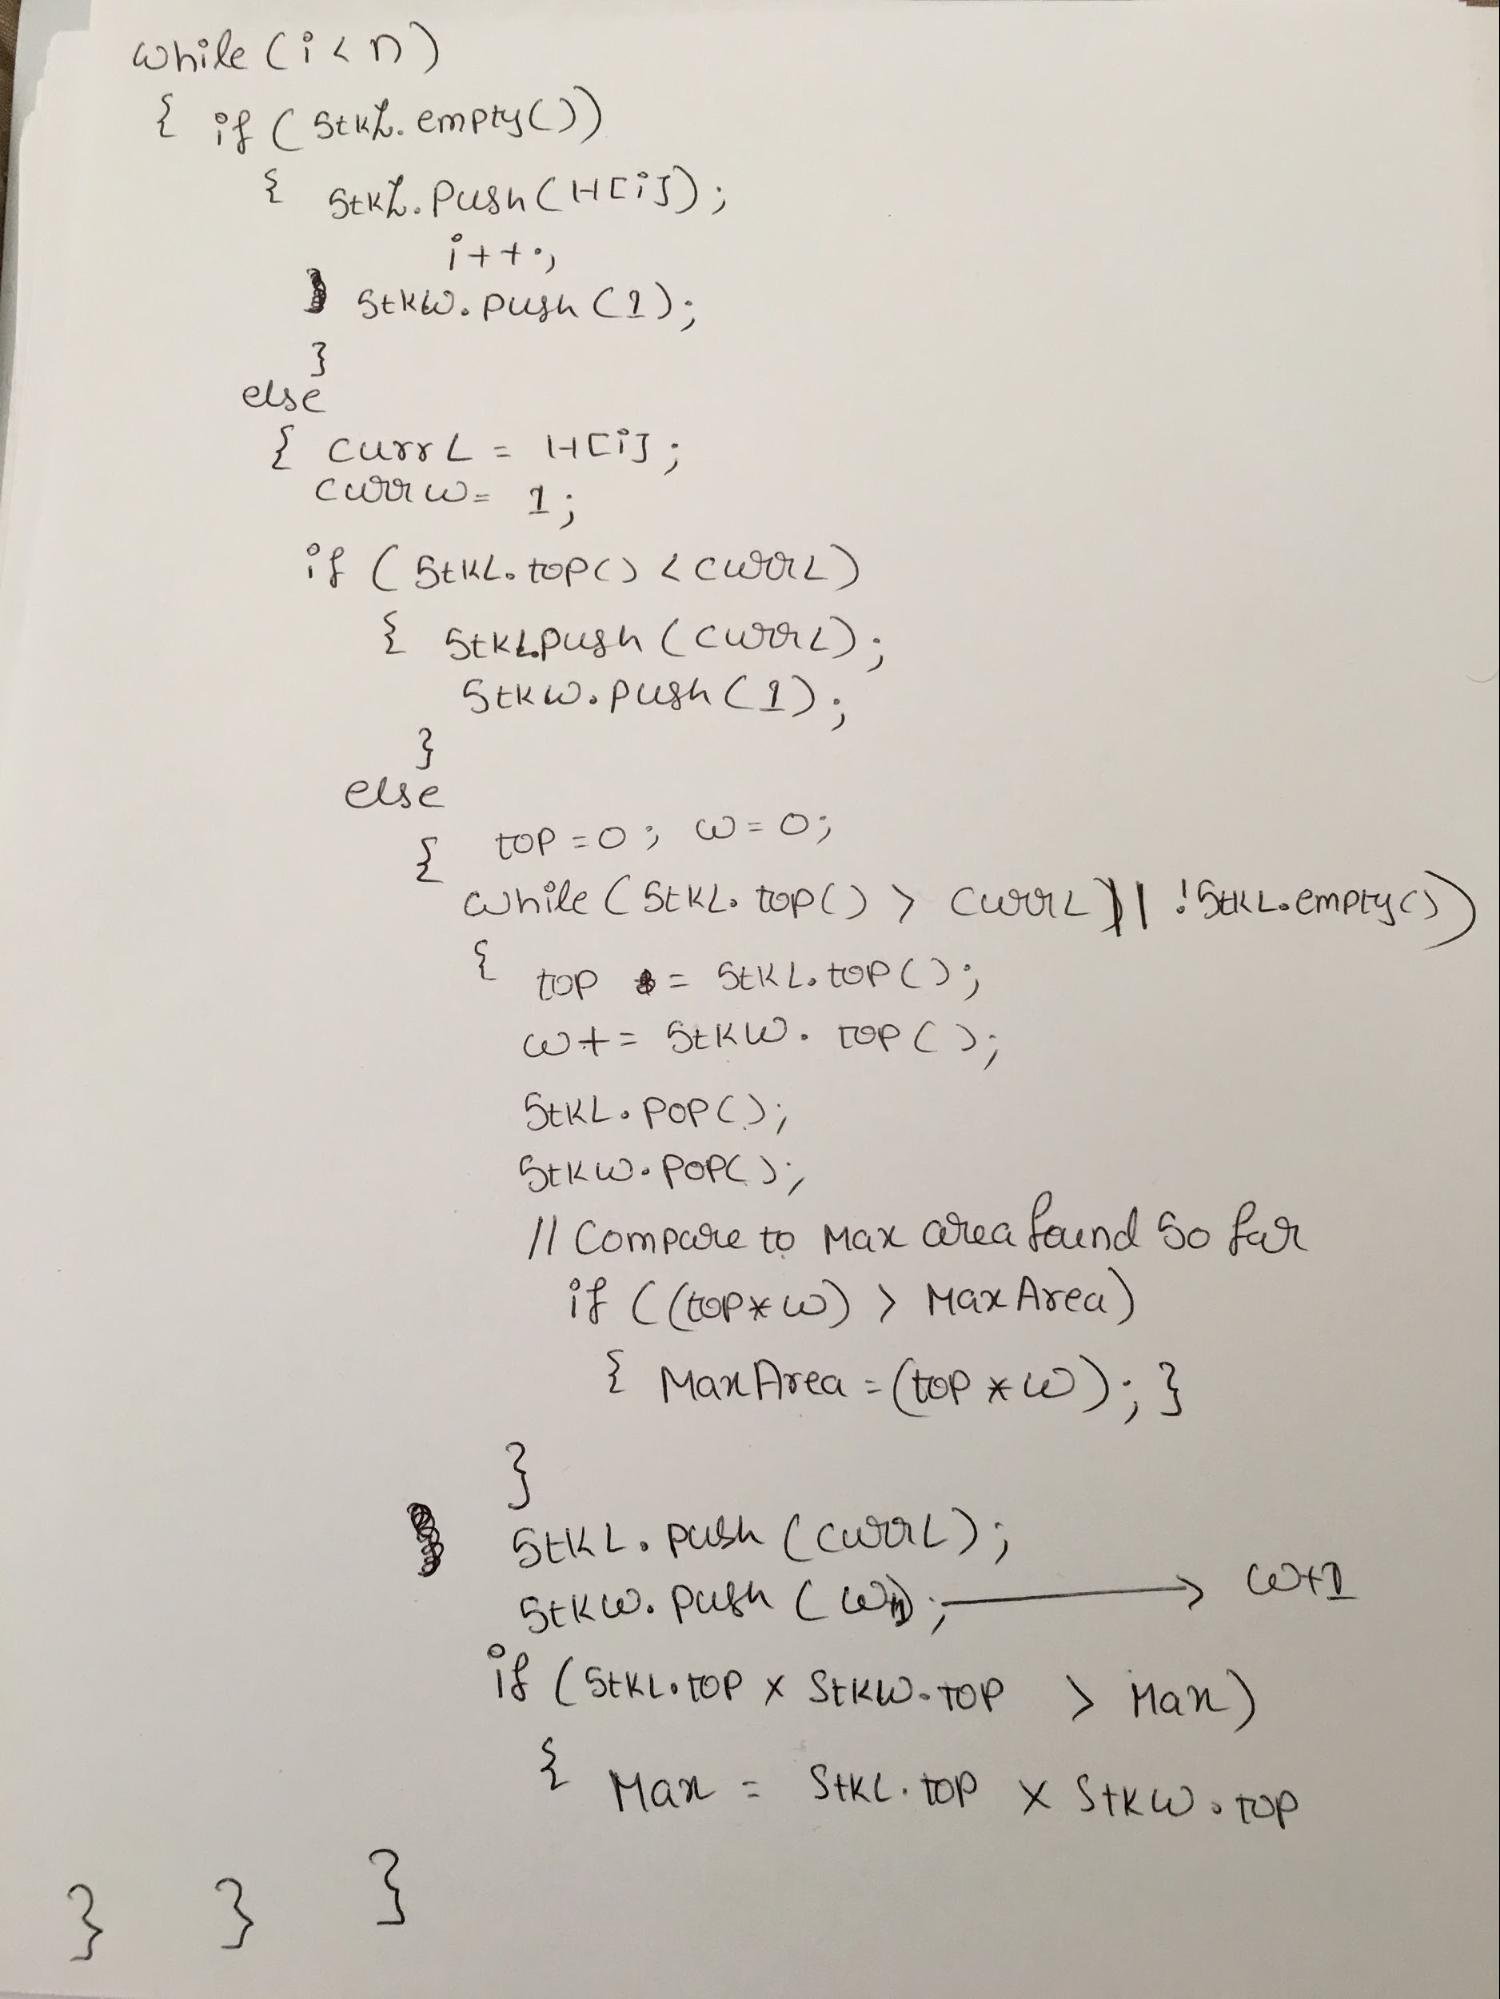 while (i < n)
{ if (StkL.empty())
{ StkL.Push(H[i]);
i++;
StkW.push(1);
}
else
{ currL = H[i];
currw = 1;
if (StkL.top() < currL)
{ StkL.push(currL);
Stkw.push(1);
}
else
{ top = 0; w = 0;
while (StkL.top() > currL || !StkL.empty())
{ top = StkL.top();
w += StkW.top();
StkL.pop();
Stkw.pop();
// Compare to Max area found So far
if ((top*w) > MaxArea)
{ MaxArea = (top * w); }
}
StkL.push(currL);
Stkw.push(w); → w+1
if (StkL.top x StkW.top > Max)
{ Max = StkL.top x Stkw.top
} } }